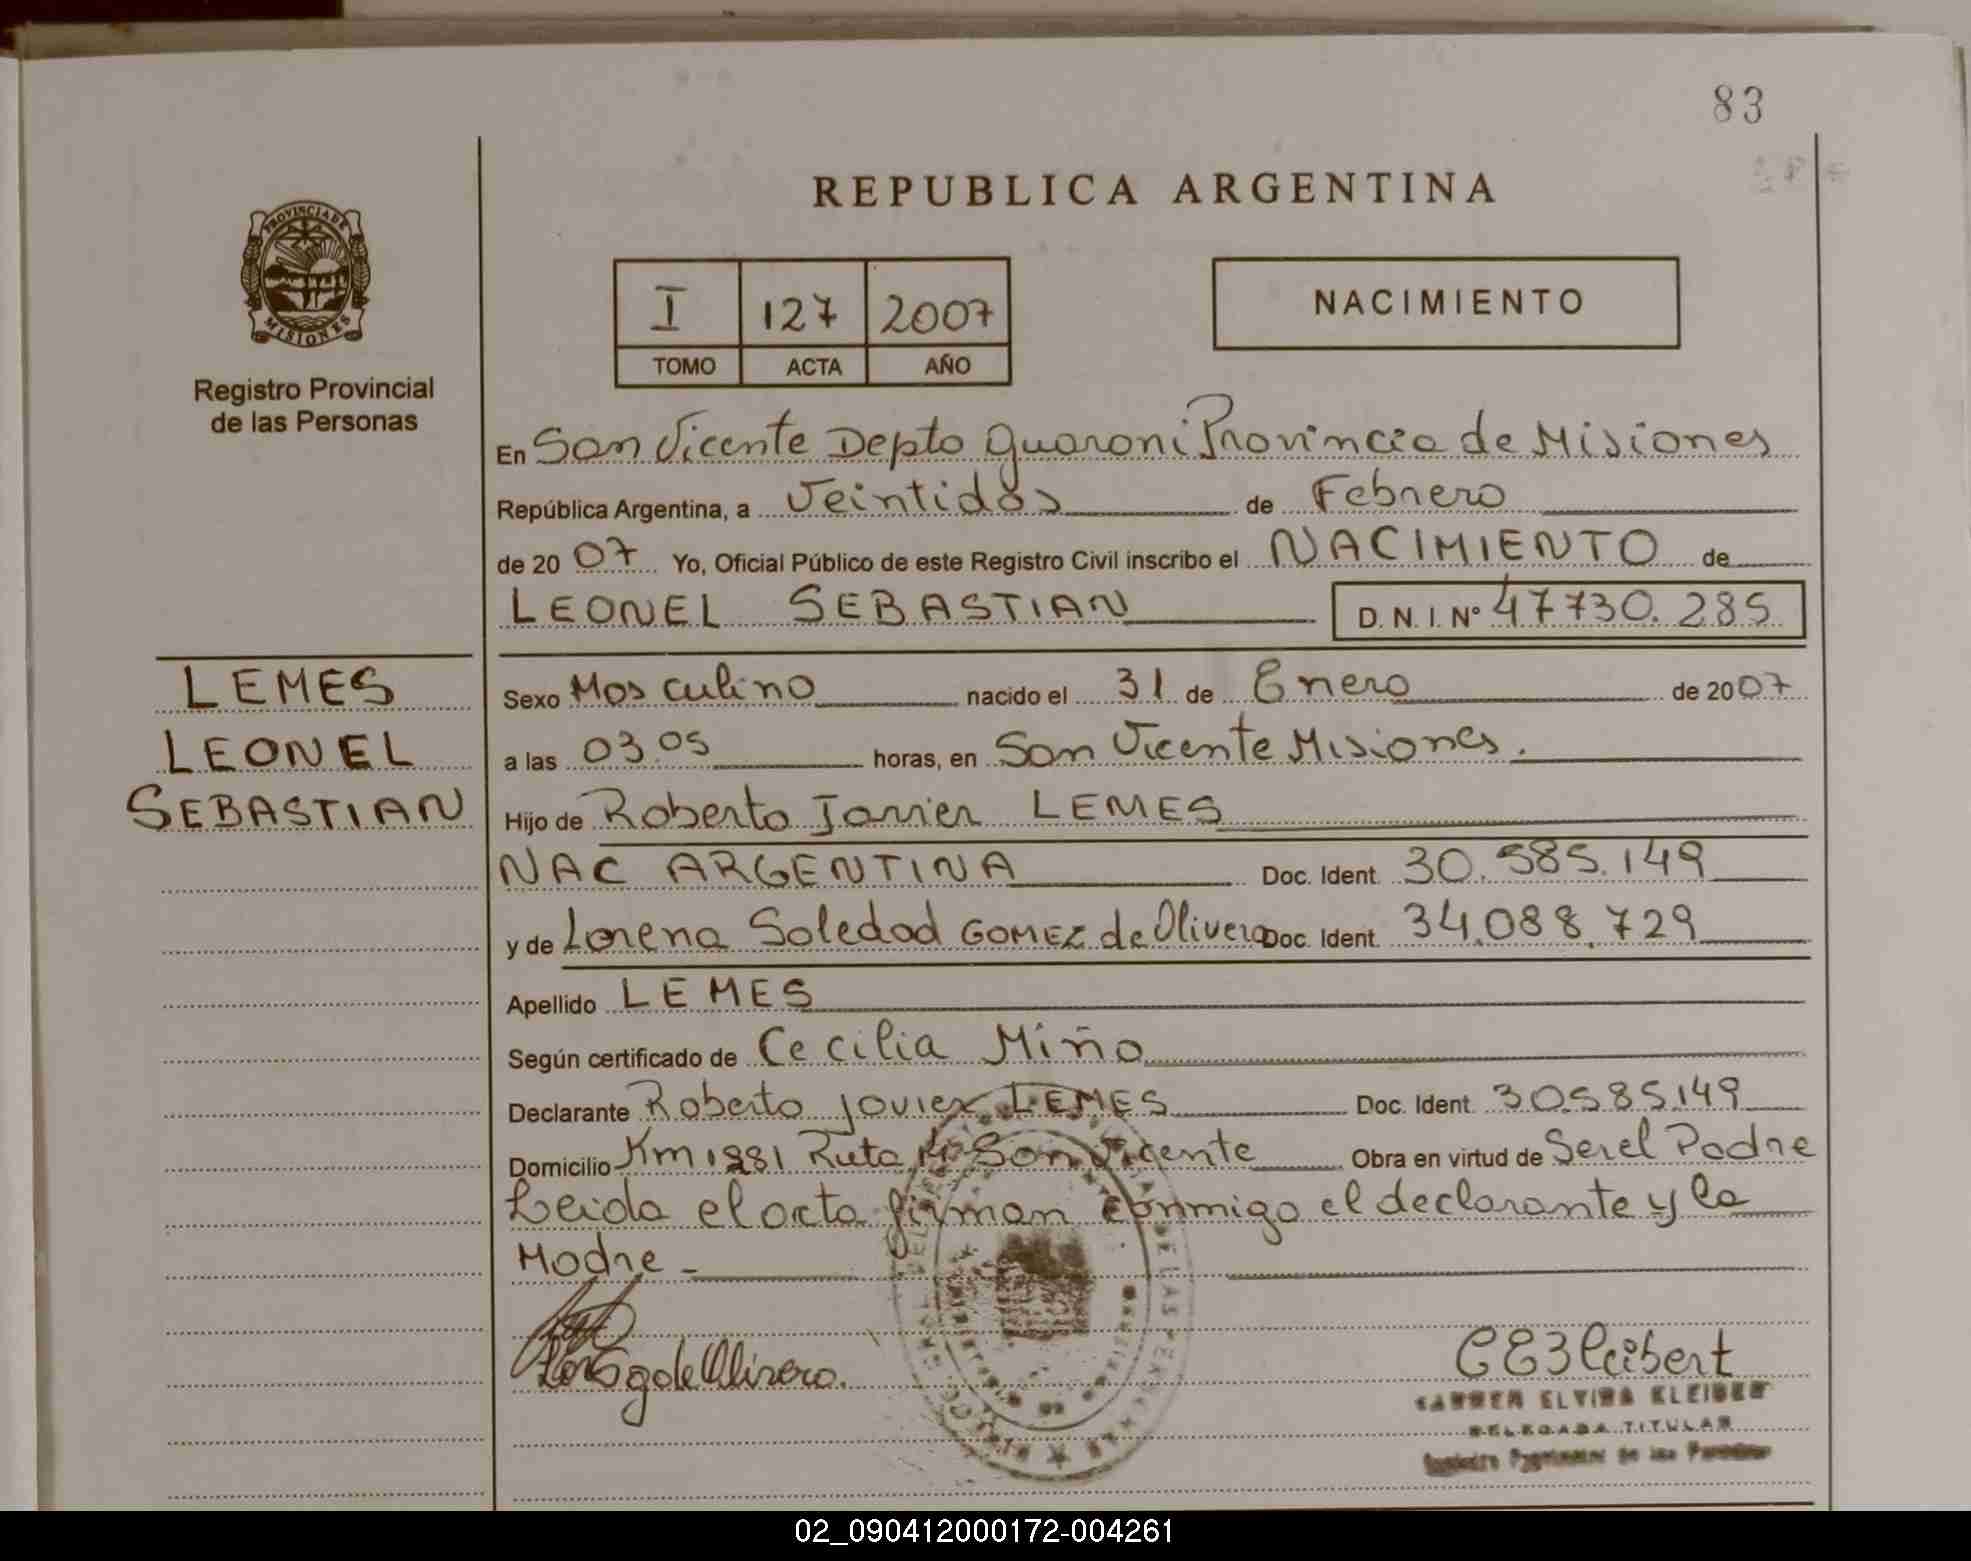 83
REPUBLICA ARGENTINA
PROVINCIA DE
MISIONES
Registro Provincial
de las Personas
I 127 2007
TOMO ACTA AÑO
NACIMIENTO
En San Vicente Depto Guarani Provincia de Misiones
República Argentina, a Veintidos de Febrero
de 2007 Yo, Oficial Público de este Registro Civil inscribo el NACIMIENTO de
LEONEL SEBASTIAN D. N. I. Nº 47730.285
LEMES
LEONEL
SEBASTIAN
Sexo Masculino nacido el 31 de Enero de 2007
a las 03.05 horas, en San Vicente Misiones.
Hijo de Roberto Javier LEMES
NAC ARGENTINA Doc. Ident. 30.585.149
y de Lorena Soledad GOMEZ de Olivera Doc. Ident. 34.088.729
Apellido LEMES
Según certificado de Cecilia Miño
Declarante Roberto Javier LEMES Doc. Ident. 30.585.149
Domicilio Km 1281 Ruta 14 San Vicente Obra en virtud de Ser el Padre
Leida el acta firman conmigo el declarante y la
Madre -
DE LAS PERSONAS
ELVIRA
DELEGADA TITULAR
02_090412000172-004261